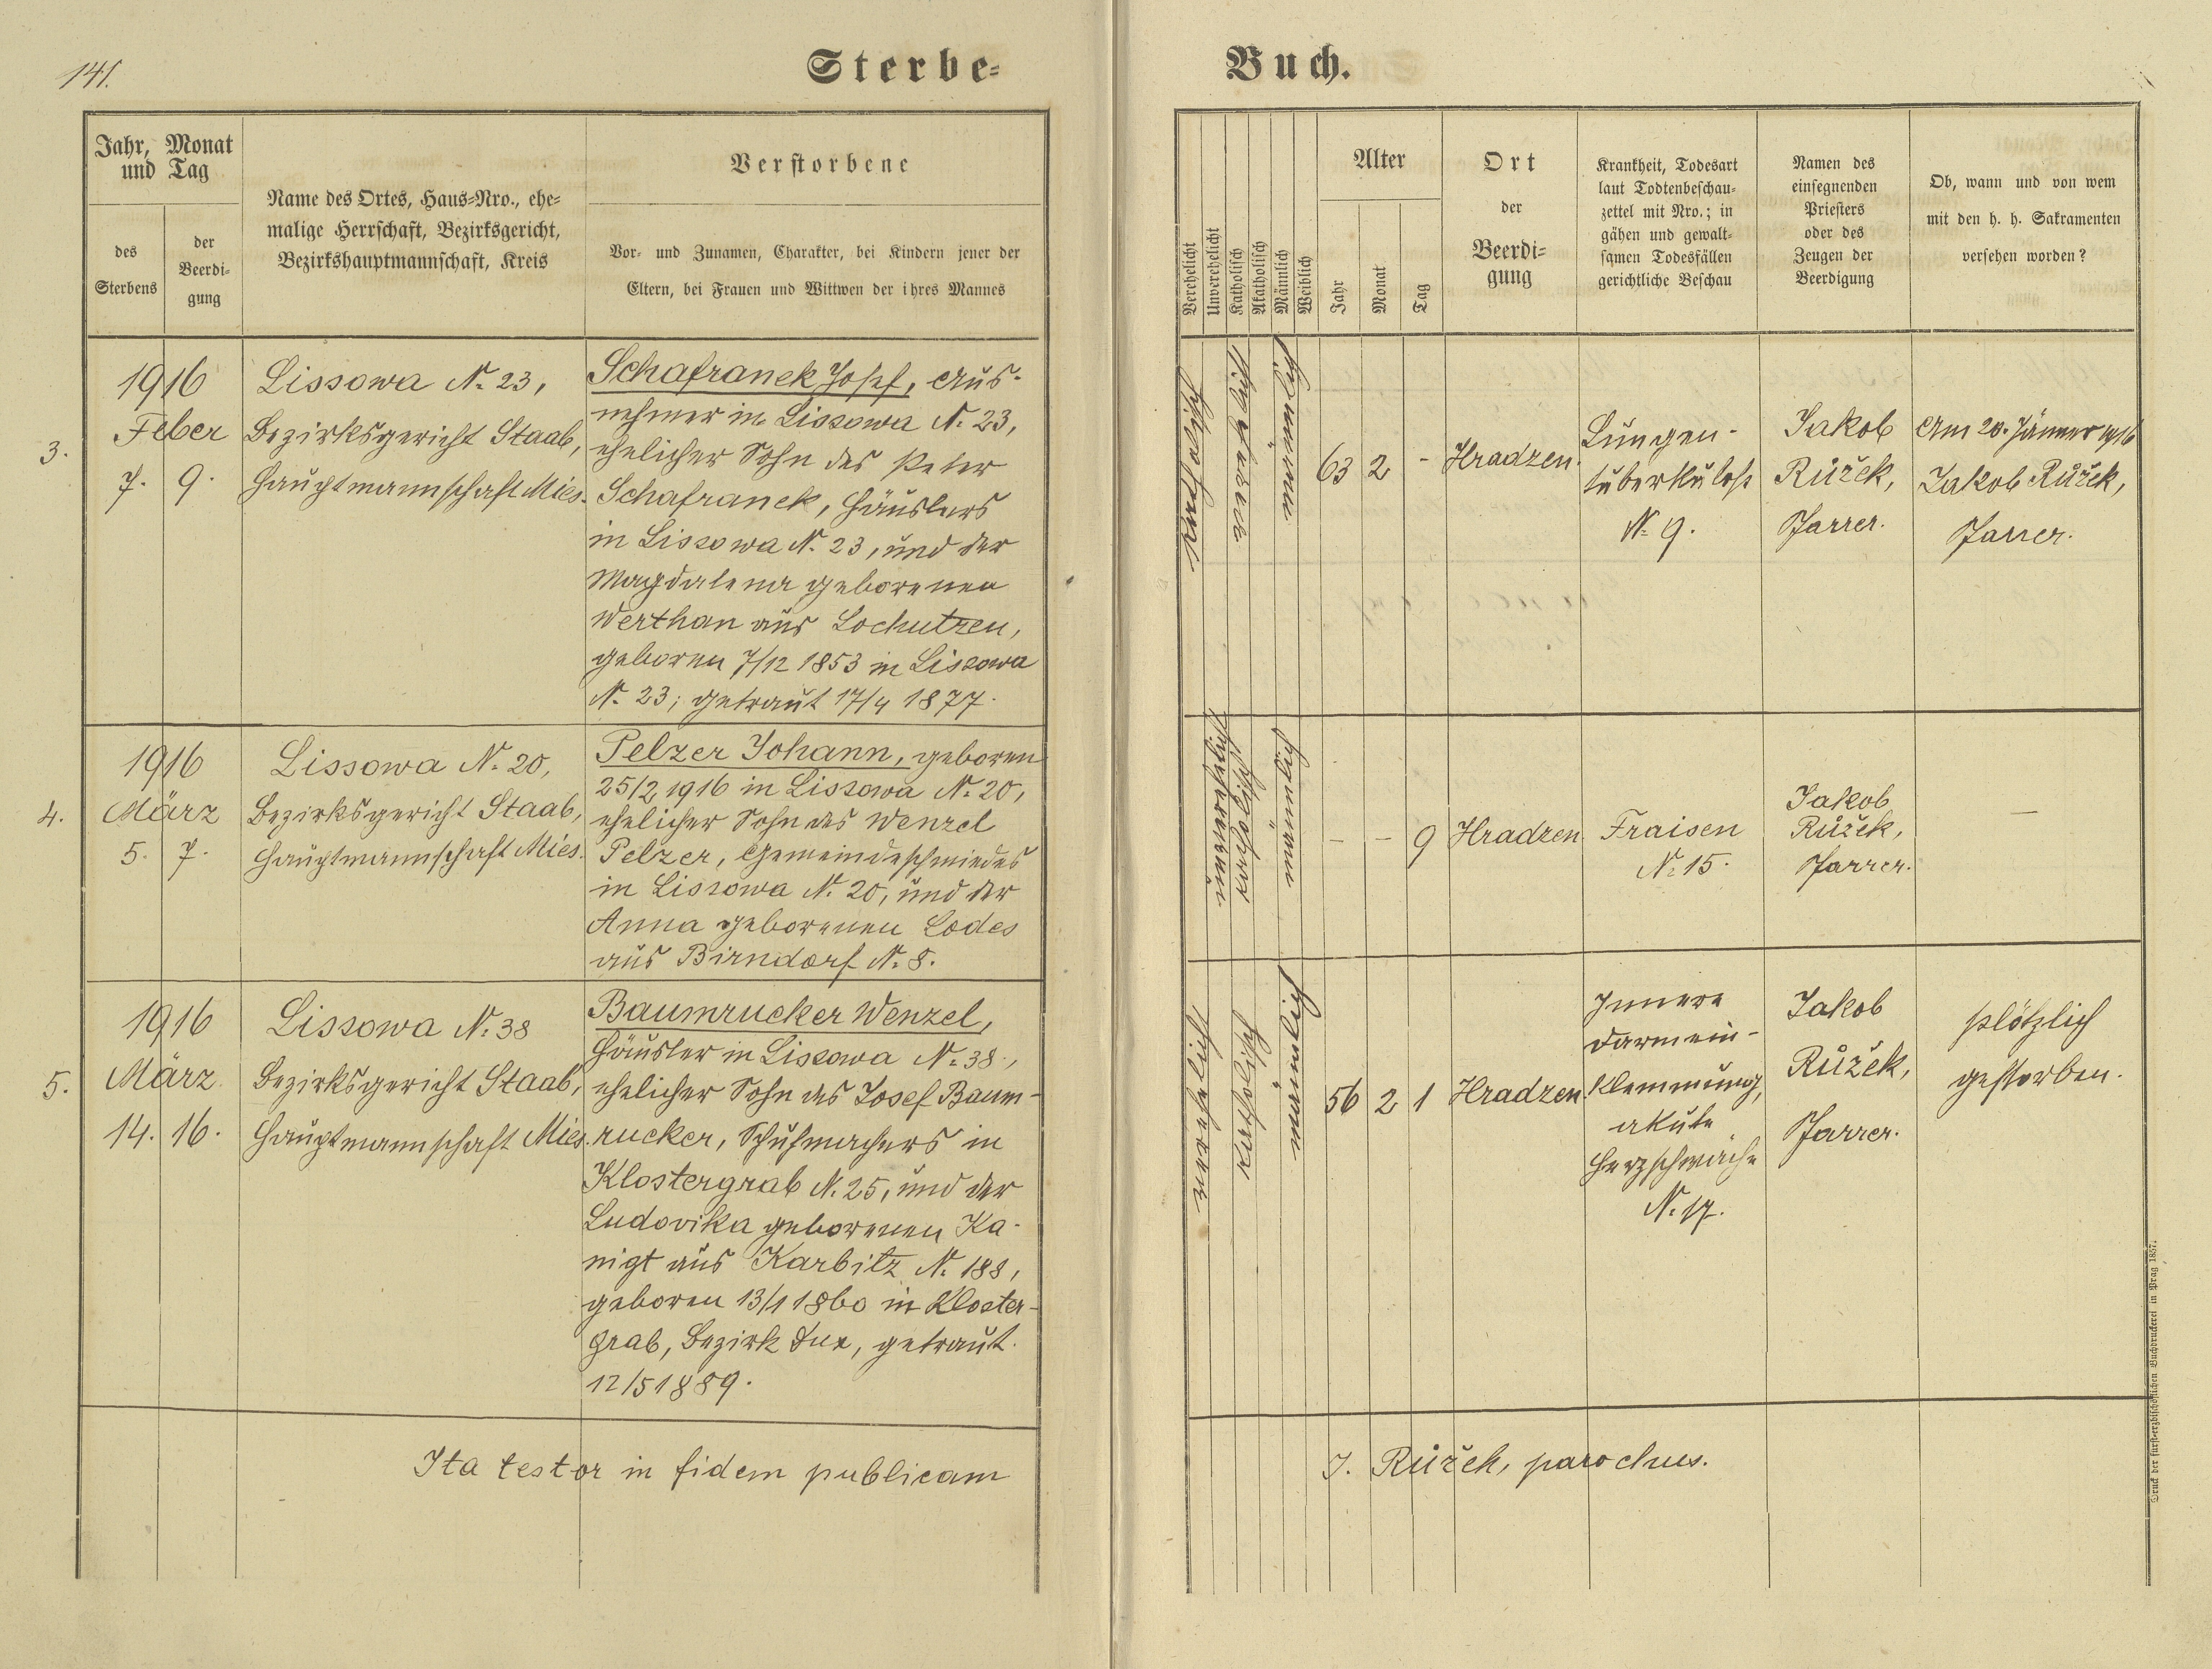 141.
Sterbe-
Buch.
Jahr, Monat
und Tag
des
Sterbens
der
Beerdi-
gung
Name des Ortes, Haus-Nro., ehe-
malige Herrschaft, Bezirksgericht,
Bezirkshauptmannschaft, Kreis
Verstorbene
Vor- und Zunamen, Charakter, bei Kindern jener der
Eltern, bei Frauen und Wittwen der ihres Mannes
Verehelicht
Unverehelicht
Katholisch
Akatholisch
Männlich
Weiblich
Alter
Jahr
Monat
Tag
Ort
der
Beerdi-
gung
Krankheit, Todesart
laut Todtenbeschau-
zettel mit Nro.; in
gähen und gewalt-
samen Todesfällen
gerichtliche Beschau
Namen des
einsegnenden
Priesters
oder des
Zeugen der
Beerdigung
Ob, wann und von wem
mit den h. h. Sakramenten
versehen worden?
3.
1916
Feber
7. 9.
Lissowa N. 23,
Bezirksgericht Staab,
Hauptmannschaft Mies.
Schafranek Josef, Aus-
nehmer in Lissowa N. 23,
ehelicher Sohn des Peter
Schafranek, Häuslers
in Lissowa N. 23, und der
Magdalena geborenen
Werthan aus Lochutzen,
geboren 7/12 1853 in Lissowa
N. 23; getraut 17/4 1877.
63 2 -
Hradzen.
Lungen-
tuberkulose
N. 9.
Jakob
Růžek,
Pfarrer.
Am 20. Jänner 1916
Jakob Růžek,
Pfarrer.
4.
1916
März
5. 7.
Lissowa N. 20,
Bezirksgericht Staab,
Hauptmannschaft Mies.
Pelzer Johann, geboren
25/2 1916 in Lissowa N. 20,
ehelicher Sohn des Wenzel
Pelzer, Gemeindeschmiedes
in Lissowa N. 20, und der
Anna geborenen Lodes
aus Birndorf N. 8.
unverehelicht
katholisch
männlich
- - 9
Hradzen
Fraisen
N. 15.
Jakob
Růžek,
Pfarrer.
—
5.
1916
März
14. 16.
Lissowa N. 38
Bezirksgericht Staab,
Hauptmannschaft Mies.
Baumrucker Wenzel,
Häusler in Lissowa N. 38,
ehelicher Sohn des Josef Baum-
rucker, Schuhmachers in
Klostergrab N. 25, und der
Ludovika geborenen Ka-
nigt aus Karbitz N. 188,
geboren 13/1 1860 in Kloster-
grab, Bezirk Dux, getraut
12/5 1889.
verehelicht
katholisch
männlich
56 2 1
Hradzen
Innere
Darmein-
klemmung,
akute
Herzschwäche
N. 17.
Jakob
Růžek,
Pfarrer.
plötzlich
gestorben.
Ita testor in fidem publicam
J. Růžek, parochus.
Druck der fürsterzbischöflichen Buchdruckerei in Prag 1857.